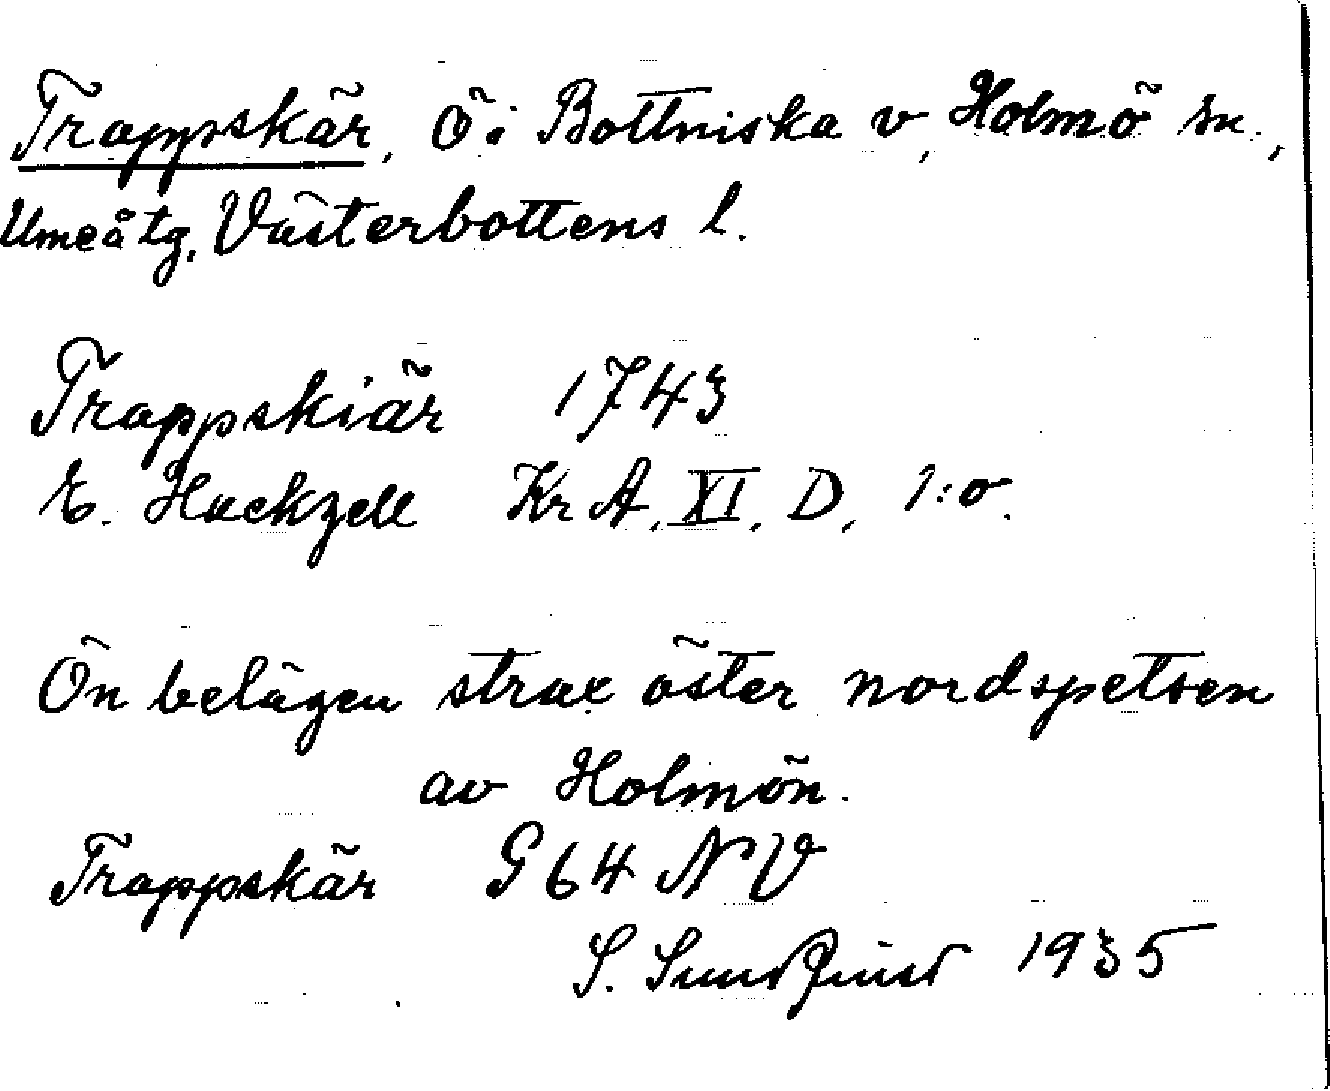 Trappskär, Ö i Bottniska v, Holmö sn.,
Umeå tg, Västerbottens l.
Trappskiär 1743
E. Hackzell Kr A, XI, D, 1:o.
Ön belägen strax öster nordspetsen
av Holmön.
Trappskär G 64 NV
S. Sundquist 1935